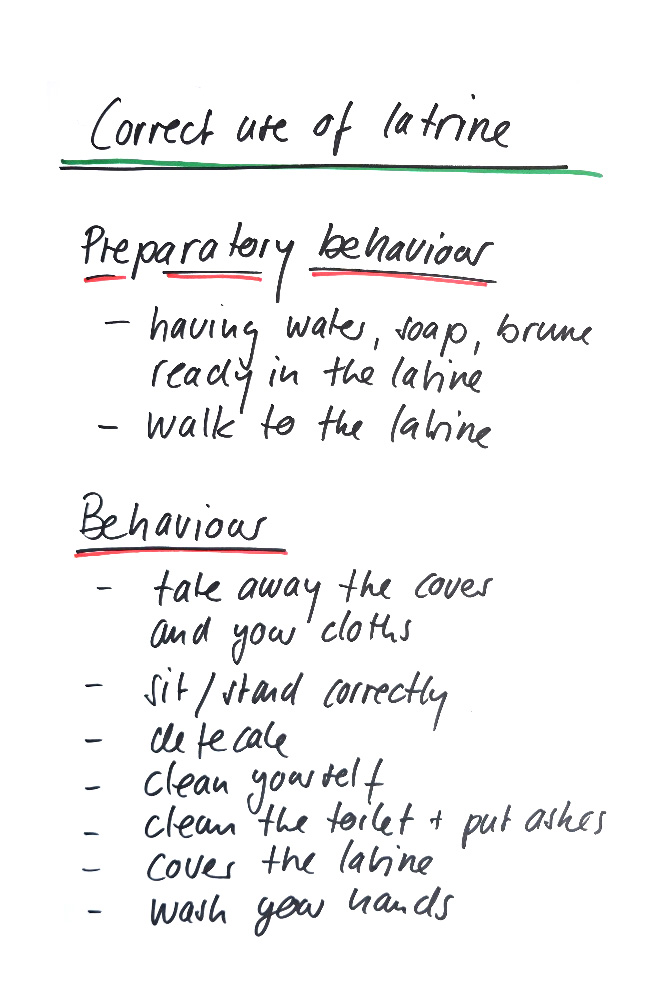 Correct use of latrine
Preparatory behaviour
- having water, soap, brune
ready in the latrine
- walk to the latrine
Behaviour
- take away the cover
and your cloths
- sit/stand correctly
- defecate
- clean yourself
- clean the toilet + put ashes
- cover the latrine
- wash your hands